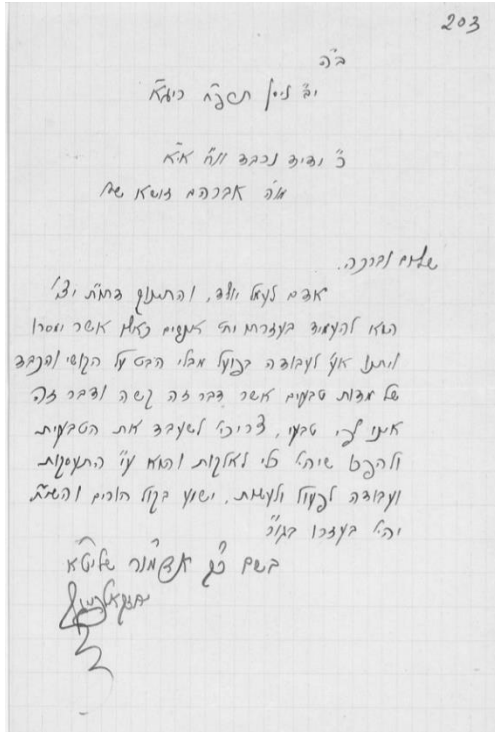 203
ב"ה
י"ב ניסן תרפ"ח ריגא
כ' ידידי הנכבד וו"ח אי"א
מו"ה אברהם זוסיא שי'
שלום וברכה.
אדם לעמל יולד, והחנוך דחת"ת יצ'
הוא להעמיד בעזרתו ית' אנשים כאלו אשר ימסרו
ויתנו א"ע לעבודה בפועל מבלי הבט על הקושי והכבד
של מדות טבעים אשר דבר זה קשה ודבר זה
אינו לפי טבעי, צריכי' לשעבד את הטבעיות
ולהפכו שיהי' כלי לאלקות והוא ע"י התעסקות
ועבודה לפעול ולעשות. ישמע בקול מורים והשי"ת
יהי' בעזרו בגו"ר
בשם כ"ק אדמו"ר שליט"א